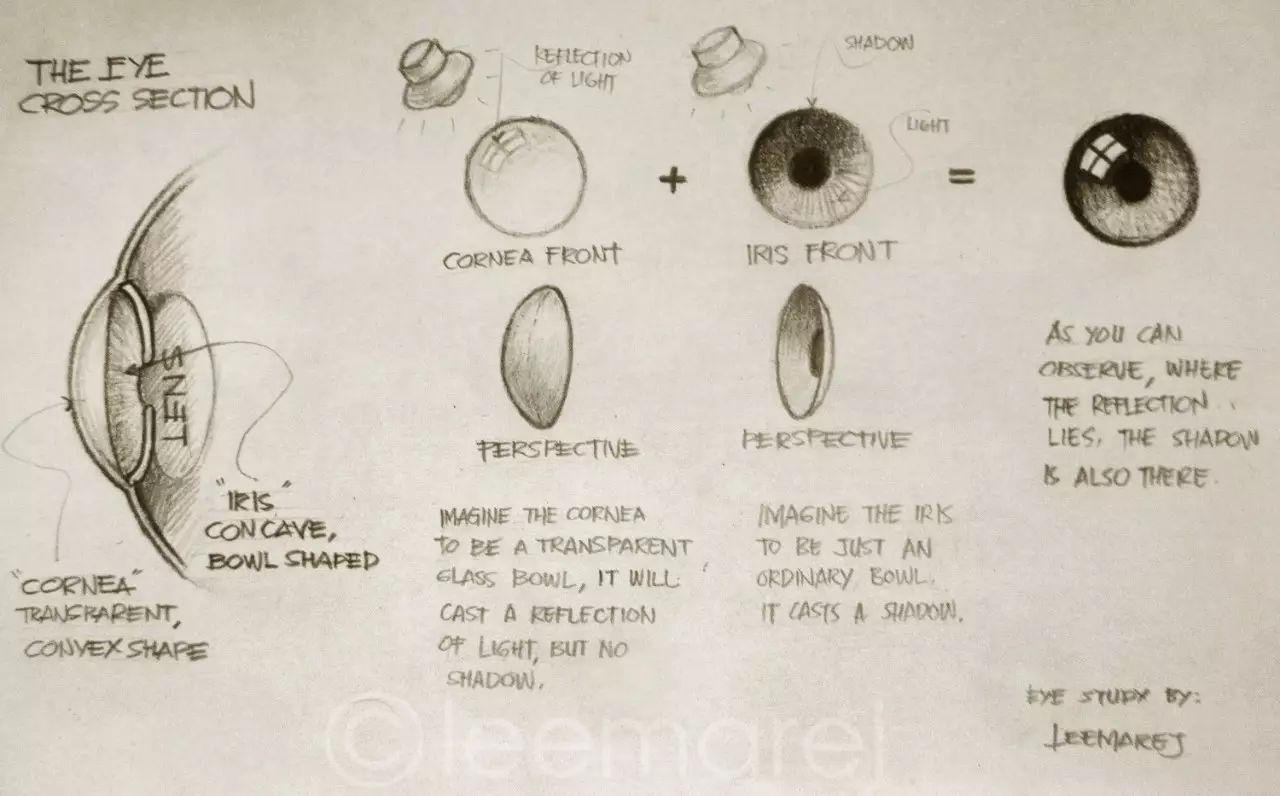 THE EYE
CROSS SECTION
REFLECTION
OF LIGHT
SHADOW
LIGHT
+
=
CORNEA FRONT
IRIS FRONT
LENS
PERSPECTIVE
PERSPECTIVE
"IRIS"
CONCAVE,
BOWL SHAPED
"CORNEA"
TRANSPARENT,
CONVEX SHAPE
IMAGINE THE CORNEA
TO BE A TRANSPARENT
GLASS BOWL, IT WILL
CAST A REFLECTION
OF LIGHT, BUT NO
SHADOW.
IMAGINE THE IRIS
TO BE JUST AN
ORDINARY BOWL.
IT CASTS A SHADOW.
AS YOU CAN
OBSERVE, WHERE
THE REFLECTION..
LIES, THE SHADOW
IS ALSO THERE.
EYE STUDY BY:
LEEMAREJ
©leemarej